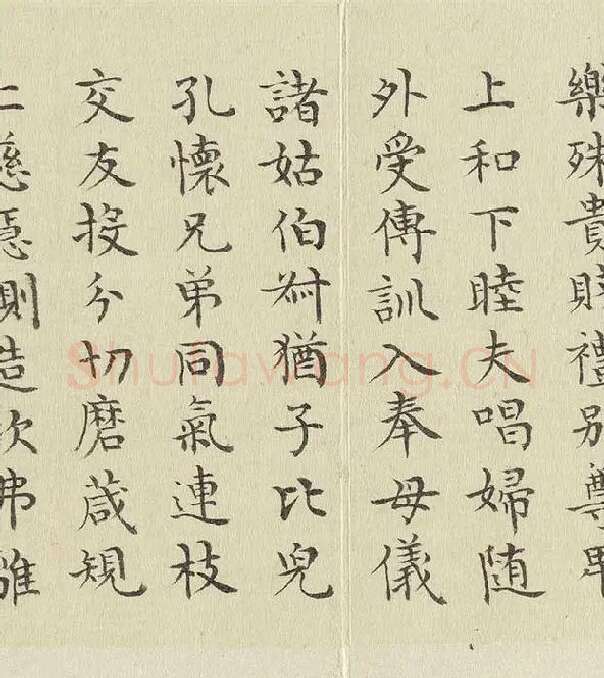 樂殊貴賤禮別尊卑
上和下睦夫唱婦随
外受傅訓入奉母儀
諸姑伯叔猶子比兒
孔懷兄弟同氣連枝
交友投分切磨葴規
仁慈隱惻造次弗離
Shufawang.CN